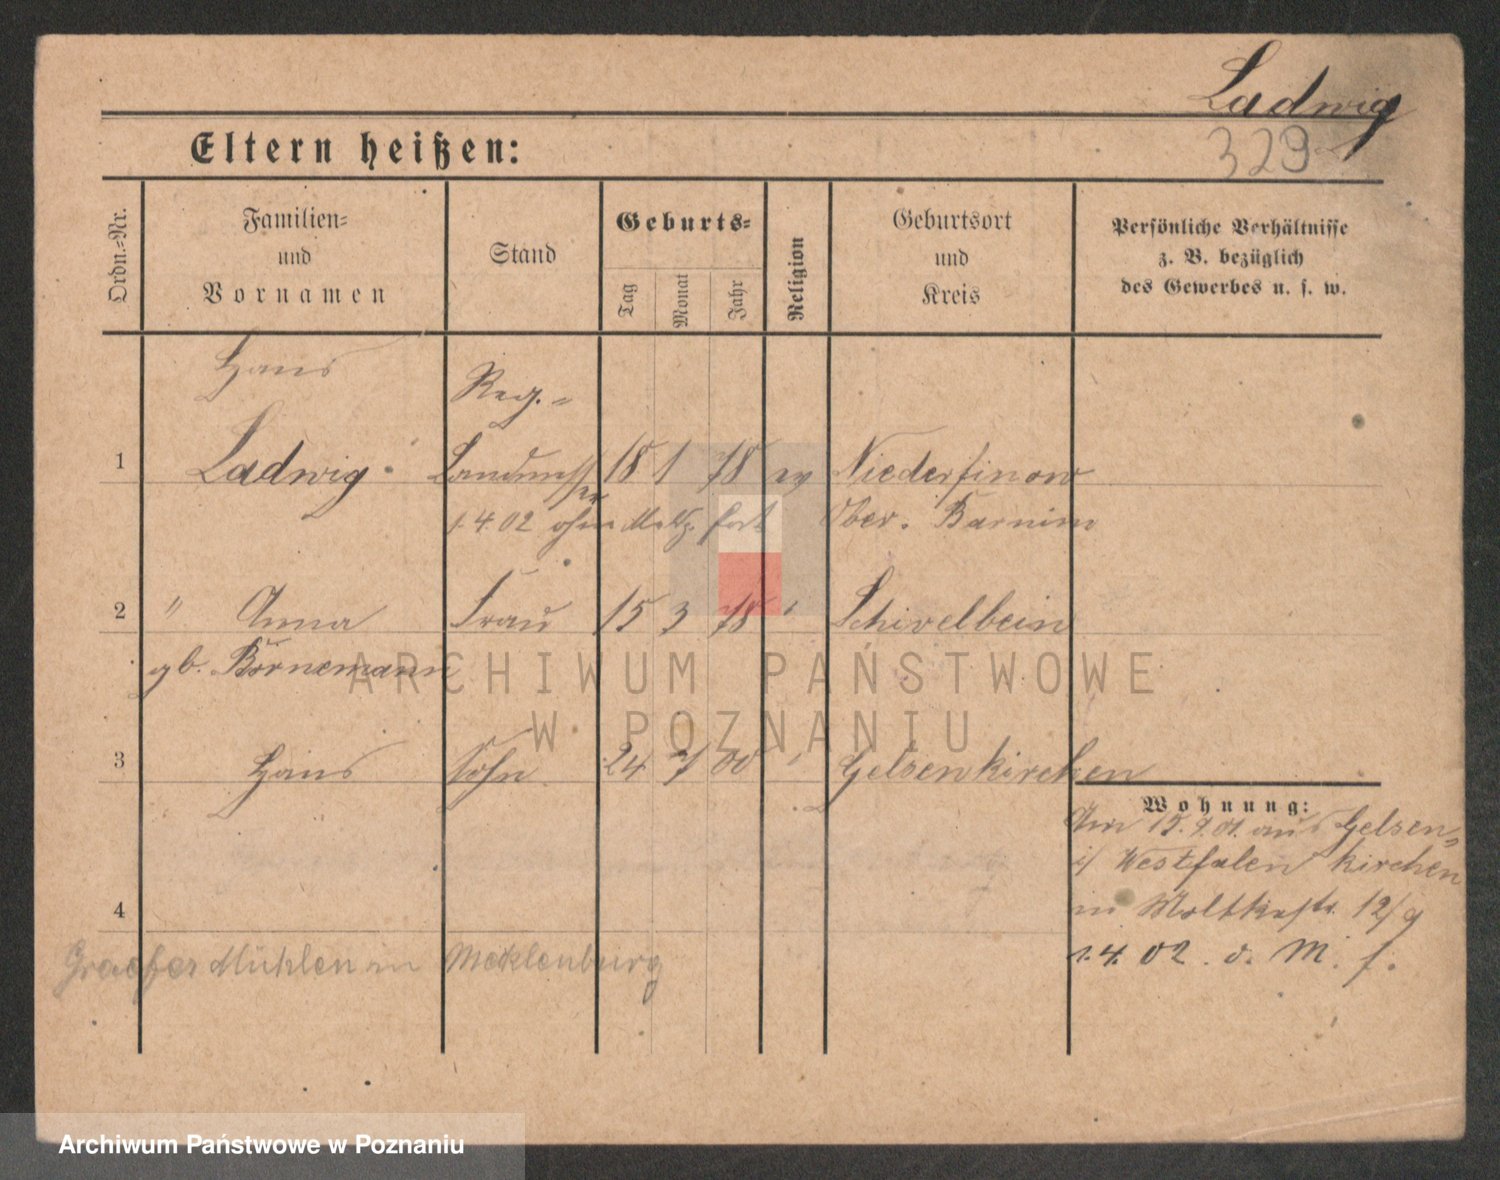 Ladwig
329
Eltern heißen:
Ordn.-Nr.
Familien-
und
Vornamen
Stand
Geburts-
Tag
Monat
Jahr
Religion
Geburtsort
und
Kreis
Persönliche Verhältnisse
z. B. bezüglich
des Gewerbes u. s. w.
Hans
Reg.-
1 Ladwig Landmesser 18 1 78 ev Niederfinow
1.4.02 ohne fort Ober. Barnim
2 " Anna Frau 15 3 78 " Schivelbein
gb. Bornemann
ARCHIWUM PAŃSTWOWE
W POZNANIU
3 Hans Sohn 24 7 00 " Gelsenkirchen
Wohnung:
Am 15.9.01. aus Gelsen-
i/ Westfalen kirchen
in Moltkestr. 12/9
4
1.4.02. o. M. f.
Mühlen in Mecklenburg
Archiwum Państwowe w Poznaniu